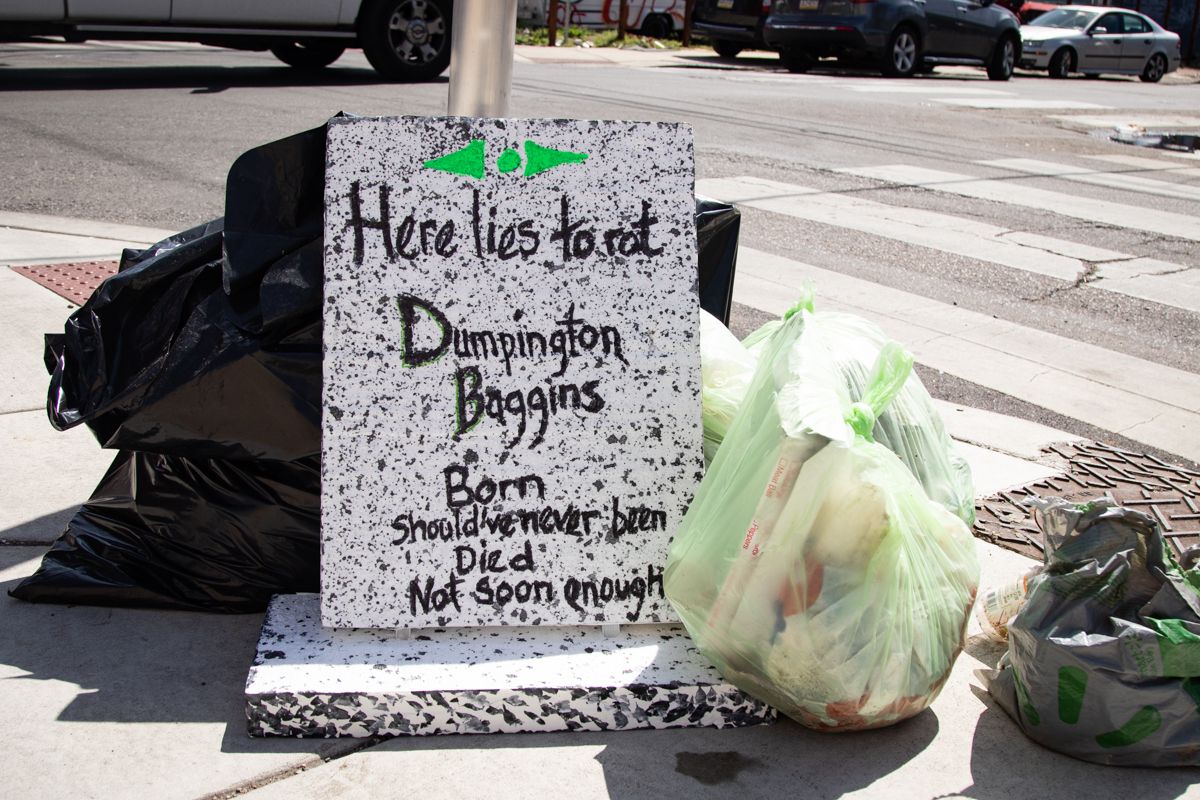 Here lies to rot
Dumpington
Baggins
Born
should've never been
Died
Not soon enough